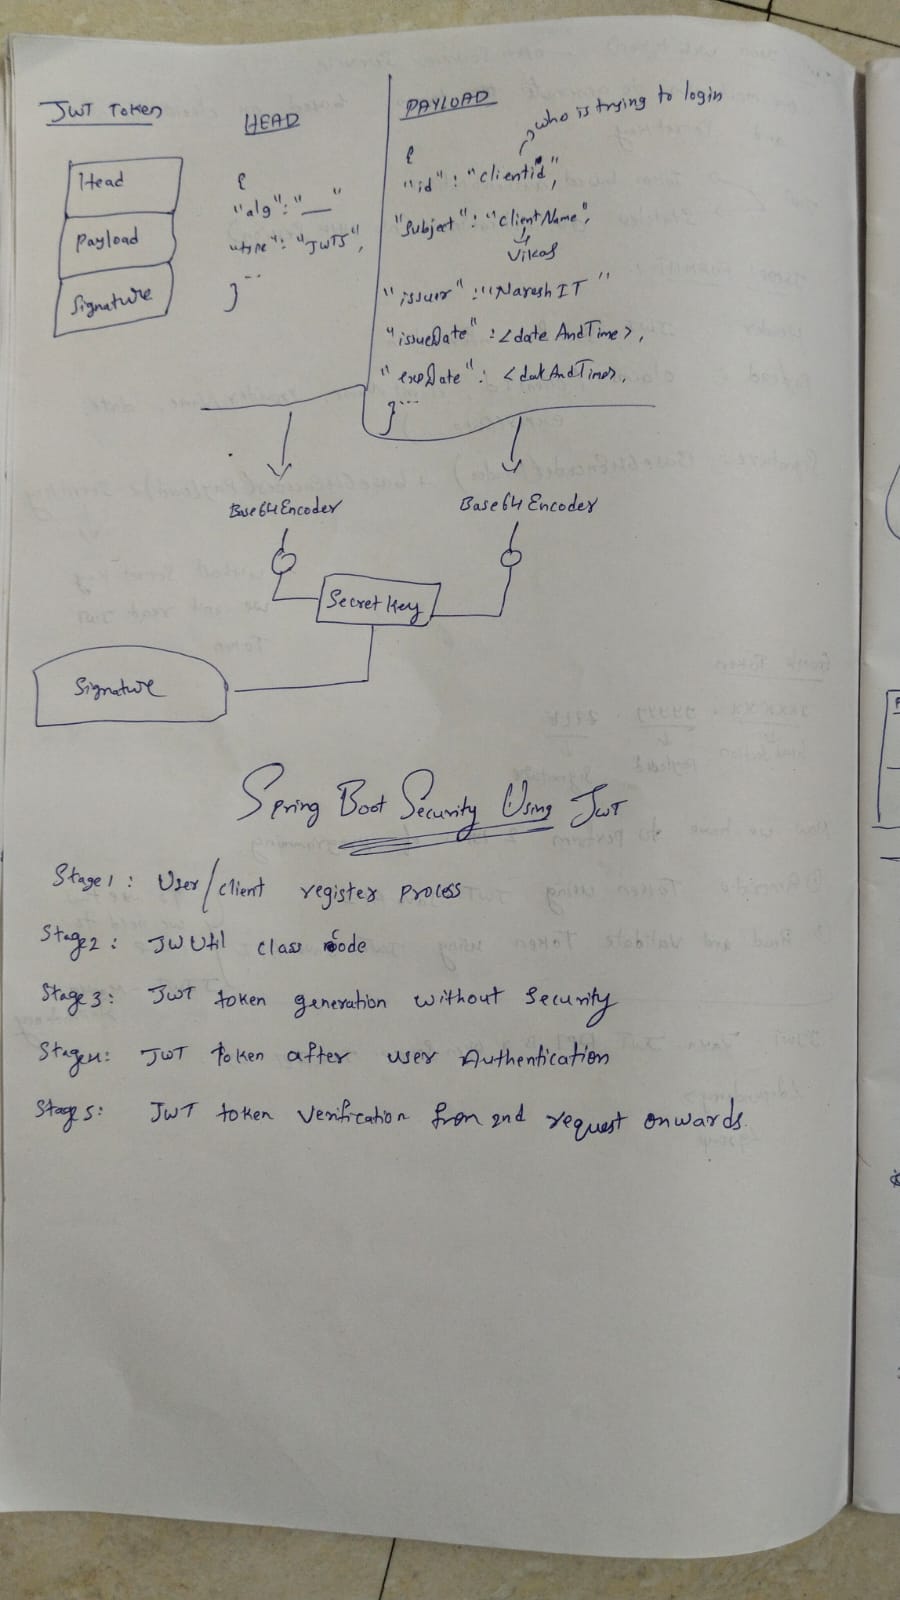 JWT Token
Head
Payload
Signature
HEAD
{
"alg":"__"
"type": "JWTS",
}...
PAYLOAD
who is trying to login
{
"id" : "clientid",
"Subject" : "clientName",
Vikas
"issuer" : "NareshIT"
"issueDate" : <date AndTime>,
"expDate" : <datAndTime>,
}...
Base64Encoder
Base64Encoder
Secret key
Signature
Spring Boot Security Using JWT
Stage1 : User/client register process
Stage2 : JWUtil class code
Stage3 : JWT token generation without Security
Stage4: JWT token after user Authentication
Stage5: JWT token verification from 2nd request onwards.